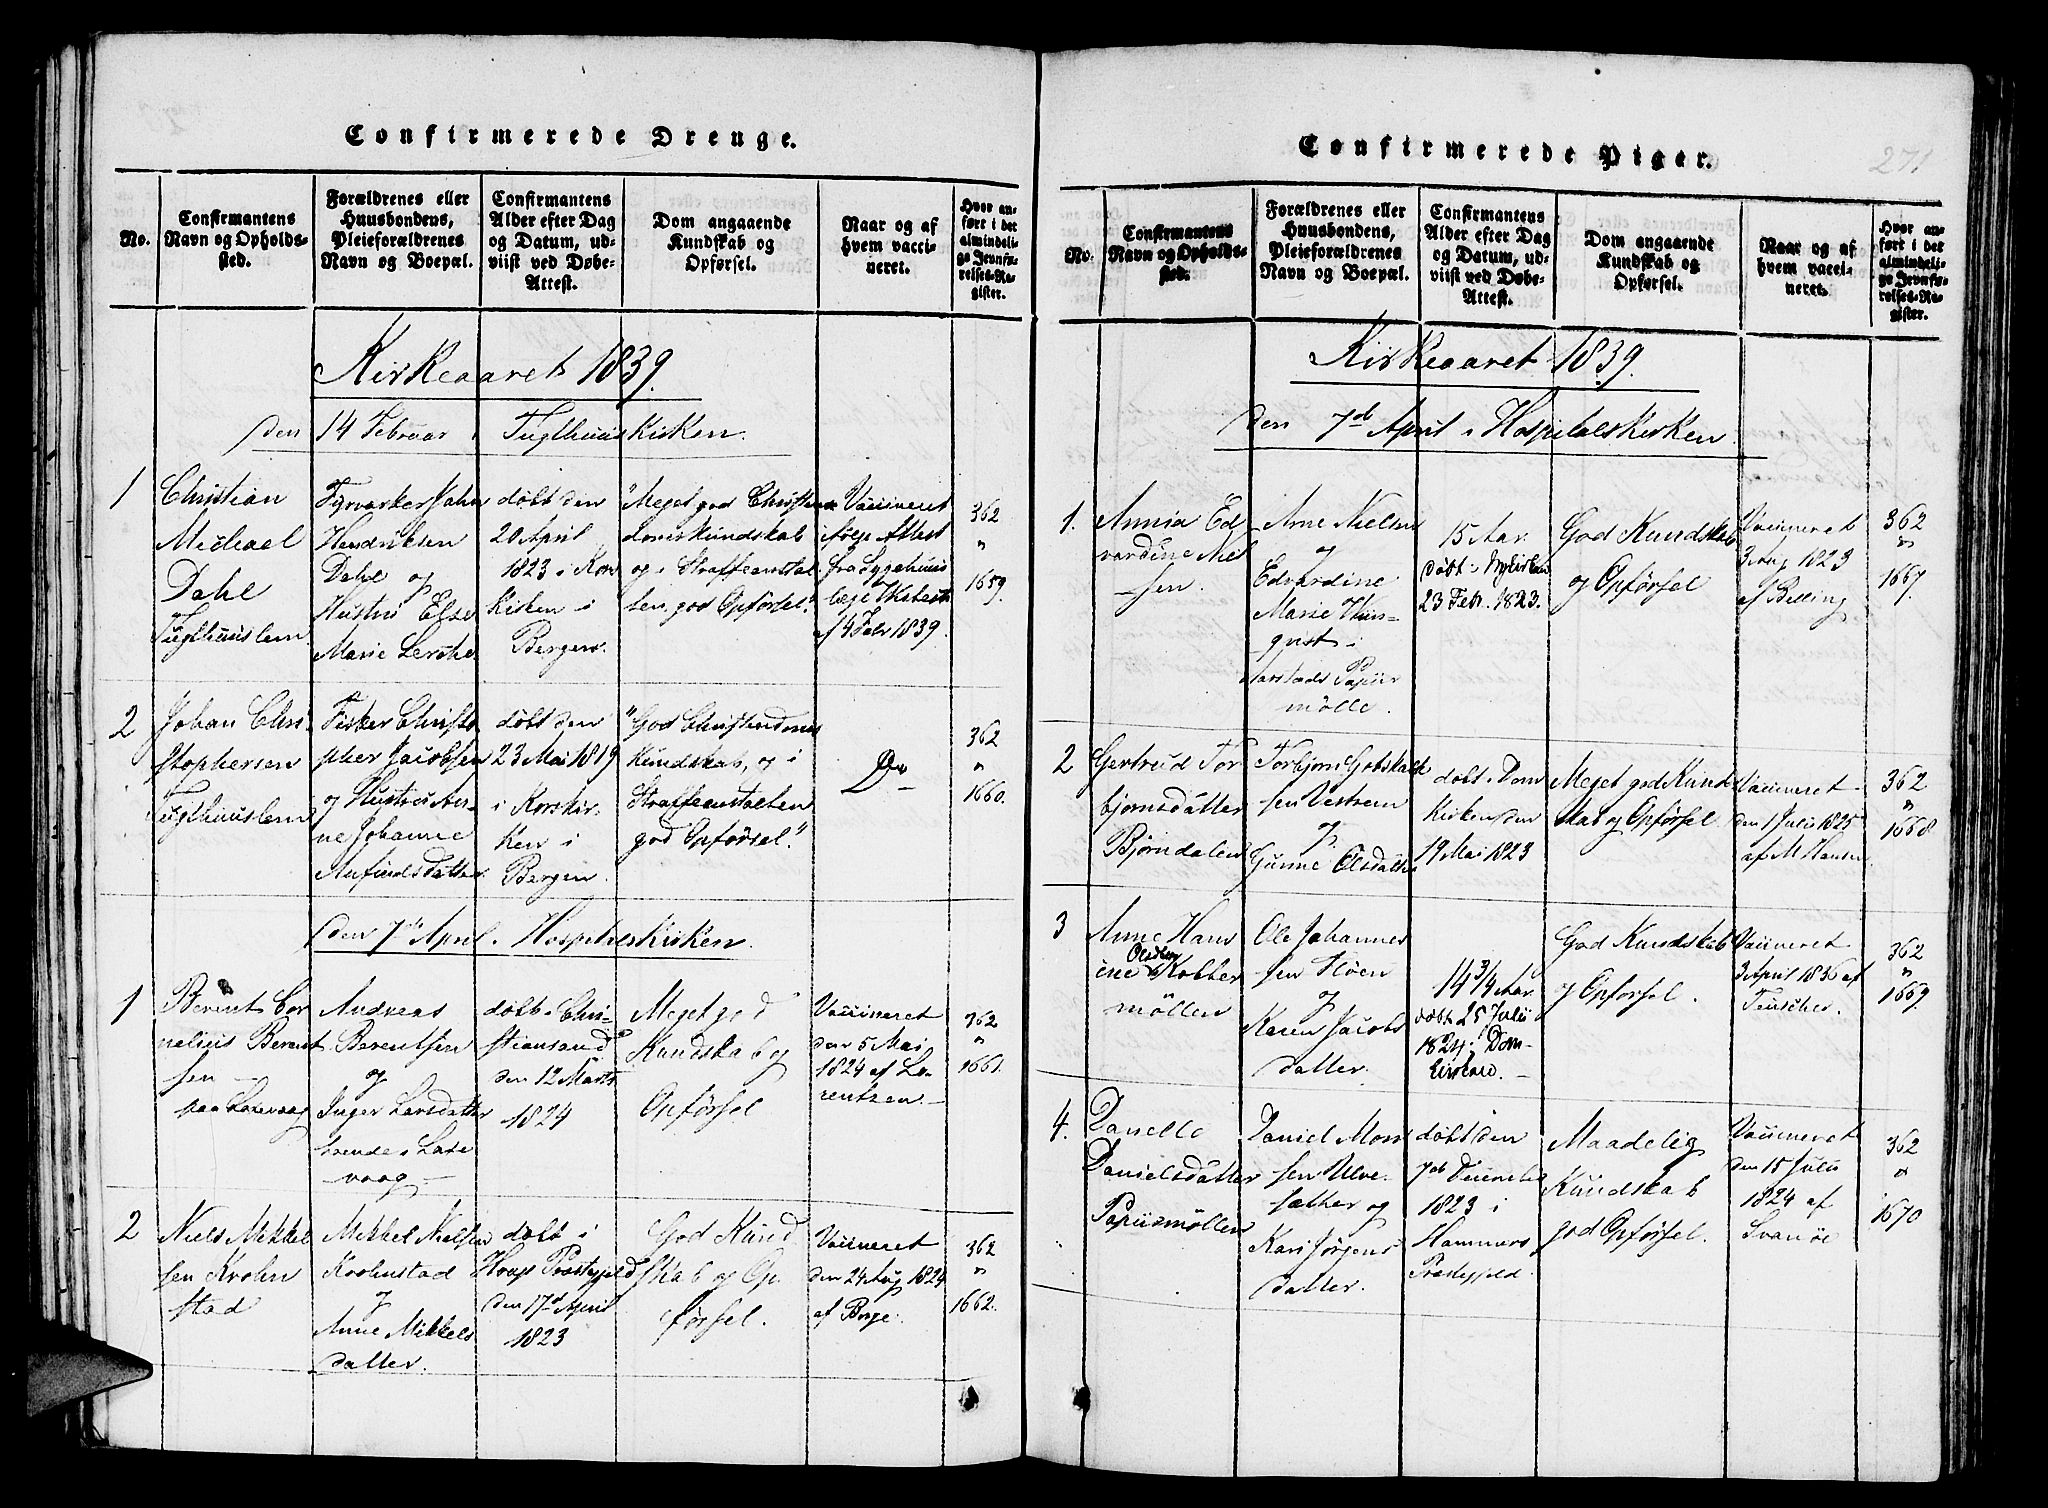 Confirmerede Drenge.
No.
Confirmantens
Navn og Opholds-
sted.
Forældrenes eller
Huusbondens,
Pleieforældrenes
Navn og Boepæl.
Confirmantens
Alder efter Dag
og Datum, ud-
viist ved Døbe-
Attest.
Dom angaaende
Kundskab og
Opførsel.
Naar og af
hvem vacci-
neret.
Hvor an-
ført i det
almindeli-
ge Jevnfø-
relses-Re-
gister.
Kirkeaaret 1839.
den 14 Februar i Tugthuuskirken.
1
Christian
Michael
Dahl
Tugthuuslem
Hendriksen
Dahl og
Hustru Else
Marie Lerche
døbt den
20 April
1823 i Kors
Kirken i
Bergen.
"Meget god Christen
domskundskab
og i Straffeanstal
ten god Opførsel."
Vaccineret
ifølge Attest
fra Sygehuus
læge
14 Febr 1839.
362
"
1659.
2
Johan Chri
stophersen
Tugthuuslem
Fisker Christo
pher Jacobsen
og Hustru An-
ne Johanne
Anfindsdatter
døbt den
23 Mai 1819
i Korskir-
ken i
Bergen.
"God Christendoms
kundskab, og i
Straffeanstalten
god Opførsel."
Do
362
"
1660.
den 7de April i Hospitalskirken.
1
Berent Cor
nelius Berent
sen
paa Laxevaag
Andreas
Berentsen
og
Inger Larsdatter
boende i Laxe
vaag
døbt i Chri-
stiansand
den 12 Marts
1824
Meget god
Kundskab og
Opførsel
Vaccineret
den 5 Mai
1824 af Lo-
rentzen.
362
"
1661.
2
Niels Mikkel
sen Krohn
stad
Mikkel Nielsen
Krohnstad
og
Anne Mikkels
datter.
døbt i
Hougs Præstegjeld
den 17de April
1823
God Kund
skab og Op
førsel.
Vaccineret
den 24 Aug 1824
af Berge.
362
"
1662.
Confirmerede Piger.
271
No.
Confirmantens
Navn og Opholds-
sted.
Forældrenes eller
Huusbondens,
Pleieforældrenes
Navn og Boepæl.
Confirmantens
Alder efter Dag
og Datum, ud-
viist ved Døbe-
Attest.
Dom angaaende
Kundskab og
Opførsel.
Naar og af
hvem vacci-
neret.
Hvor an-
ført i det
almindeli-
ge Jevnfø-
relses-Re-
gister.
Kirkeaaret 1839.
den 7de April i Hospitalskirken.
1.
Annia Ed
vardine Niel
sen.
Arne Nielsen
og
Edvardine
Marie
qvist i
Aarstads Papiir
mølle.
15 Aar.
døbt i Nykirken
23 Febr. 1823.
God Kundskab
og Opførsel
Vaccineret
3 Aug 1823
af Belling
362
"
1667.
2
Gertrud Tor
bjørnsdatter
Bjørndalen
Torbjørn Gotskalk
sen Vestrem
og
Gunne Olsdatter
døbt i Dom
kirken den
19 Mai 1823
Meget god Kund
skab og Opførsel.
Vaccineret
den 1 Julii 1825
af M Hansen.
362
"
1668
3
Anne Hans
ine Olsdtr Kobber
møllen
Ole Johannes
sen Fløen
og
Karen Jacobs
datter.
14 3/4 Aar.
døbt 25 Julii
1824 i Dom-
kirken.
God Kundskab
og Opførsel.
Vaccineret
3 April 1836 af
Teuscher.
362
"
1669.
4.
Danelle
Danielsdatter
Papiirmøllen
Daniel Mons
sen Ulve
sæther og
Kari Jørgens
datter.
døbt den
7de December
1823 i
Hammers
Præstegjeld.
Maadelig
Kundskab
god Opførsel.
Vaccineret
den 15 Julii
1824 af
Svanøe
362
"
1670